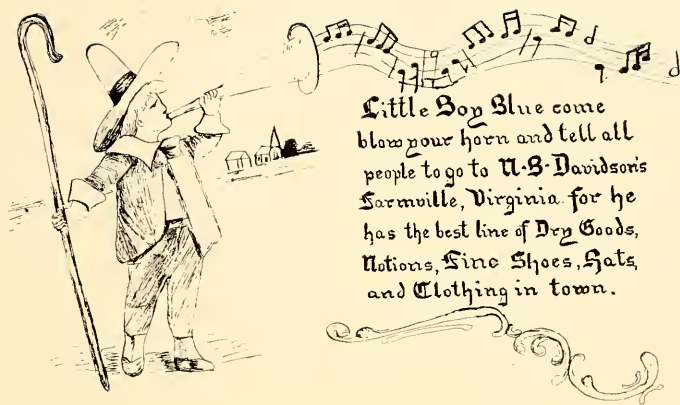 Little Boy Blue come
blow your horn and tell all
people to go to N·B·Davidson's
Farmville, Virginia for he
has the best line of Dry Goods,
Notions, Fine Shoes, Hats,
and Clothing in town.